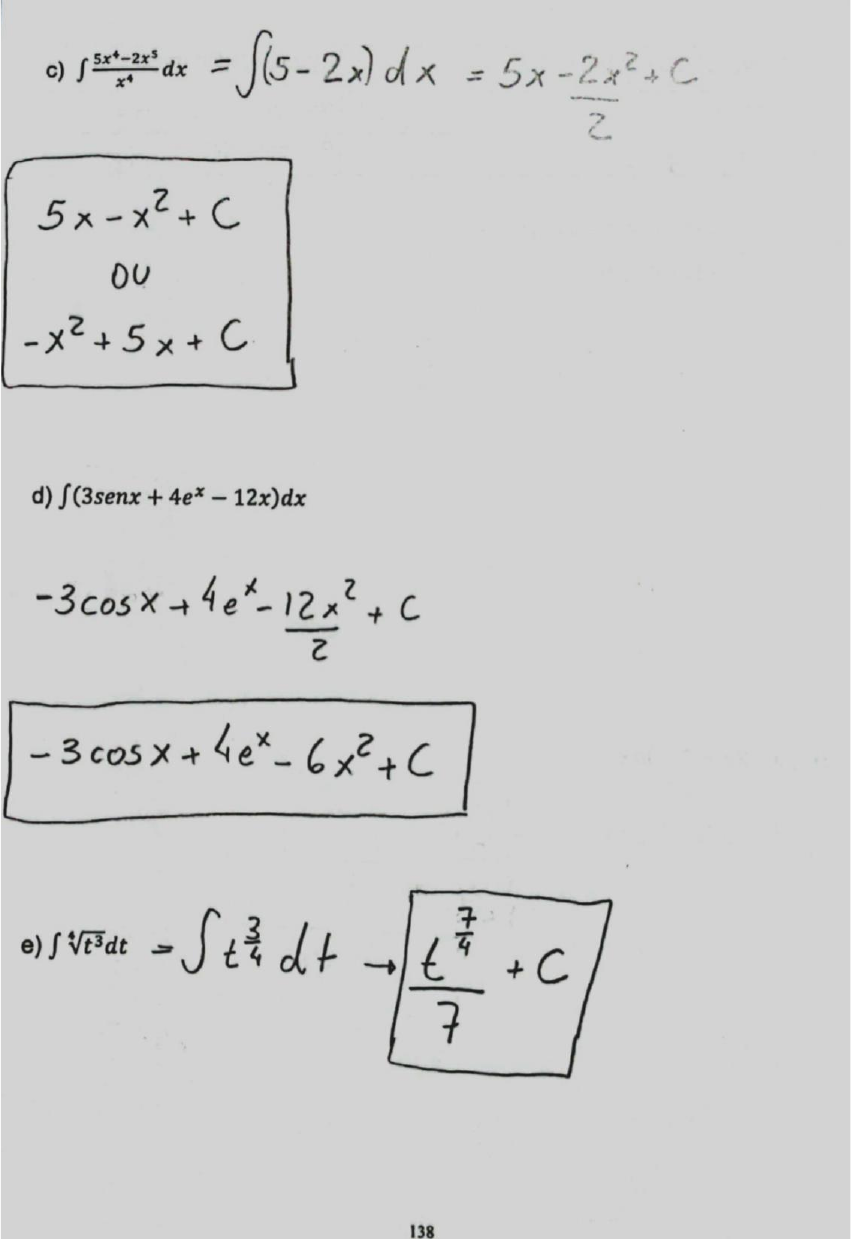 c) ∫ (5x⁴−2x⁵)/x⁴ dx = ∫(5 - 2x) dx = 5x - 2x²/2 + C
5x - x² + C
OU
-x² + 5x + C
d) ∫(3senx + 4eˣ − 12x)dx
-3cosx + 4eˣ - 12x²/2 + C
-3cosx + 4eˣ - 6x² + C
e) ∫ ⁴√t³dt = ∫ t^(3/4) dt → t^(7/4)/7 + C
138